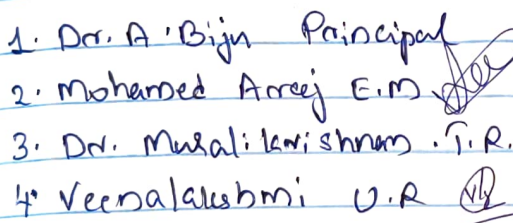 1. Dr. A. Biju Principal
2. Mohamed Areej E.M
3. Dr. Muralikrishnan .T.R.
4. Veenalakshmi U.R